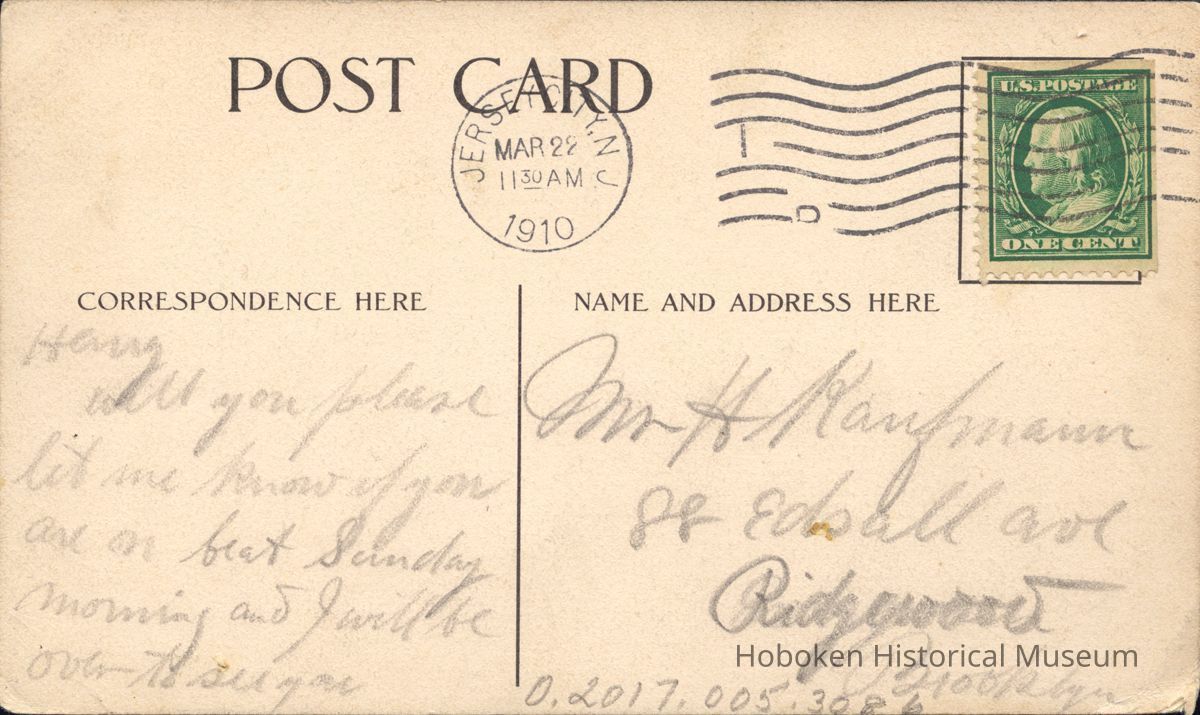 POST CARD
JERSEY CITY, N.J.
MAR 22
11 30 AM
1910
D
U.S. POSTAGE
ONE CENT
CORRESPONDENCE HERE
NAME AND ADDRESS HERE
Harry
will you please
let me know if you
are on beat Sunday
morning and I will be
over to see you
Mr H Kaufmann
88 Edsall ave
Ridgewood
Brooklyn
Hoboken Historical Museum
0.2017.005.3086